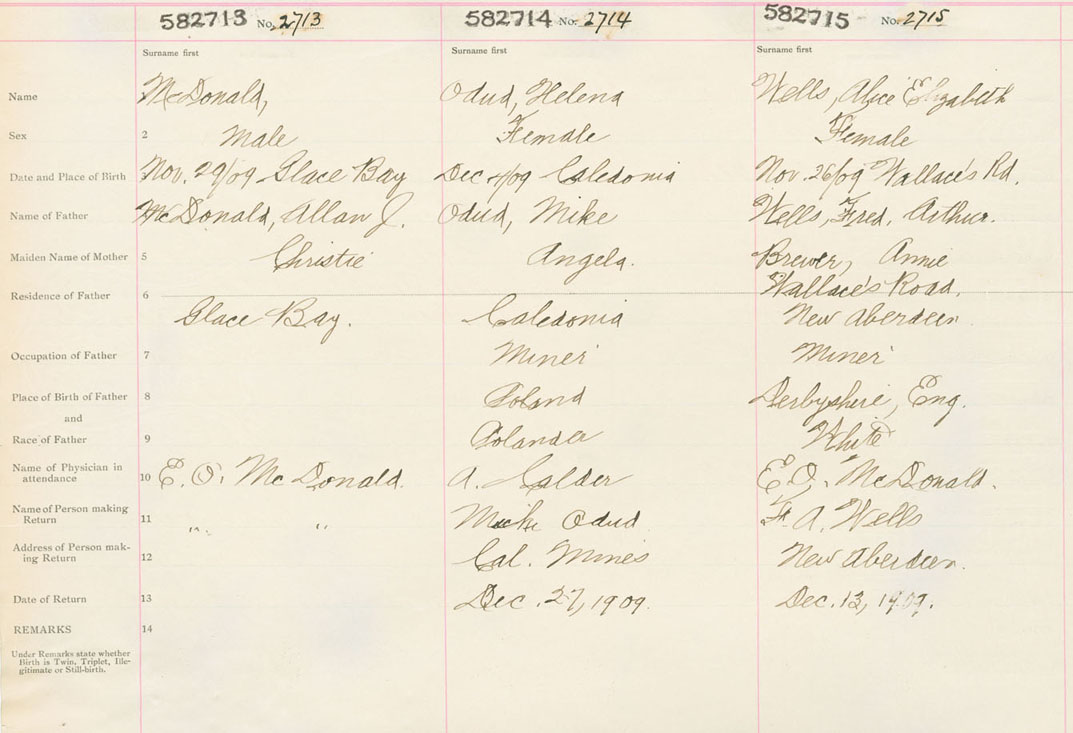 582713 No. 2713 582714 No. 2714 582715 No. 2715
Surname first Surname first Surname first
Name 1 McDonald, Odud, Helena Wells, Alice Elizabeth
Sex 2 Male Female Female
Date and Place of Birth Nov. 29/09 Glace Bay Dec 4/09 Caledonia Nov. 26/09 Wallace's Rd.
Name of Father McDonald, Allan J. Odud, Mike Wells, Fred. Arthur.
Maiden Name of Mother 5 Christie Angela. Brewer, Annie
Wallace's Road.
Residence of Father 6 Glace Bay. Caledonia New Aberdeen
Occupation of Father 7 Miner Miner
Place of Birth of Father 8 Poland Derbyshire, Eng.
and
Race of Father 9 Polander White
Name of Physician in
attendance 10 E. O. McDonald. A. Calder E. O. McDonald.
Name of Person making
Return 11 " " Mike Odud F. A. Wells
Address of Person mak-
ing Return 12 Cal. Mines New Aberdeen.
Date of Return 13 Dec. 27, 1909. Dec. 13, 1909.
REMARKS 14
Under Remarks state whether
Birth is Twin, Triplet, Ille-
gitimate or Still-birth.